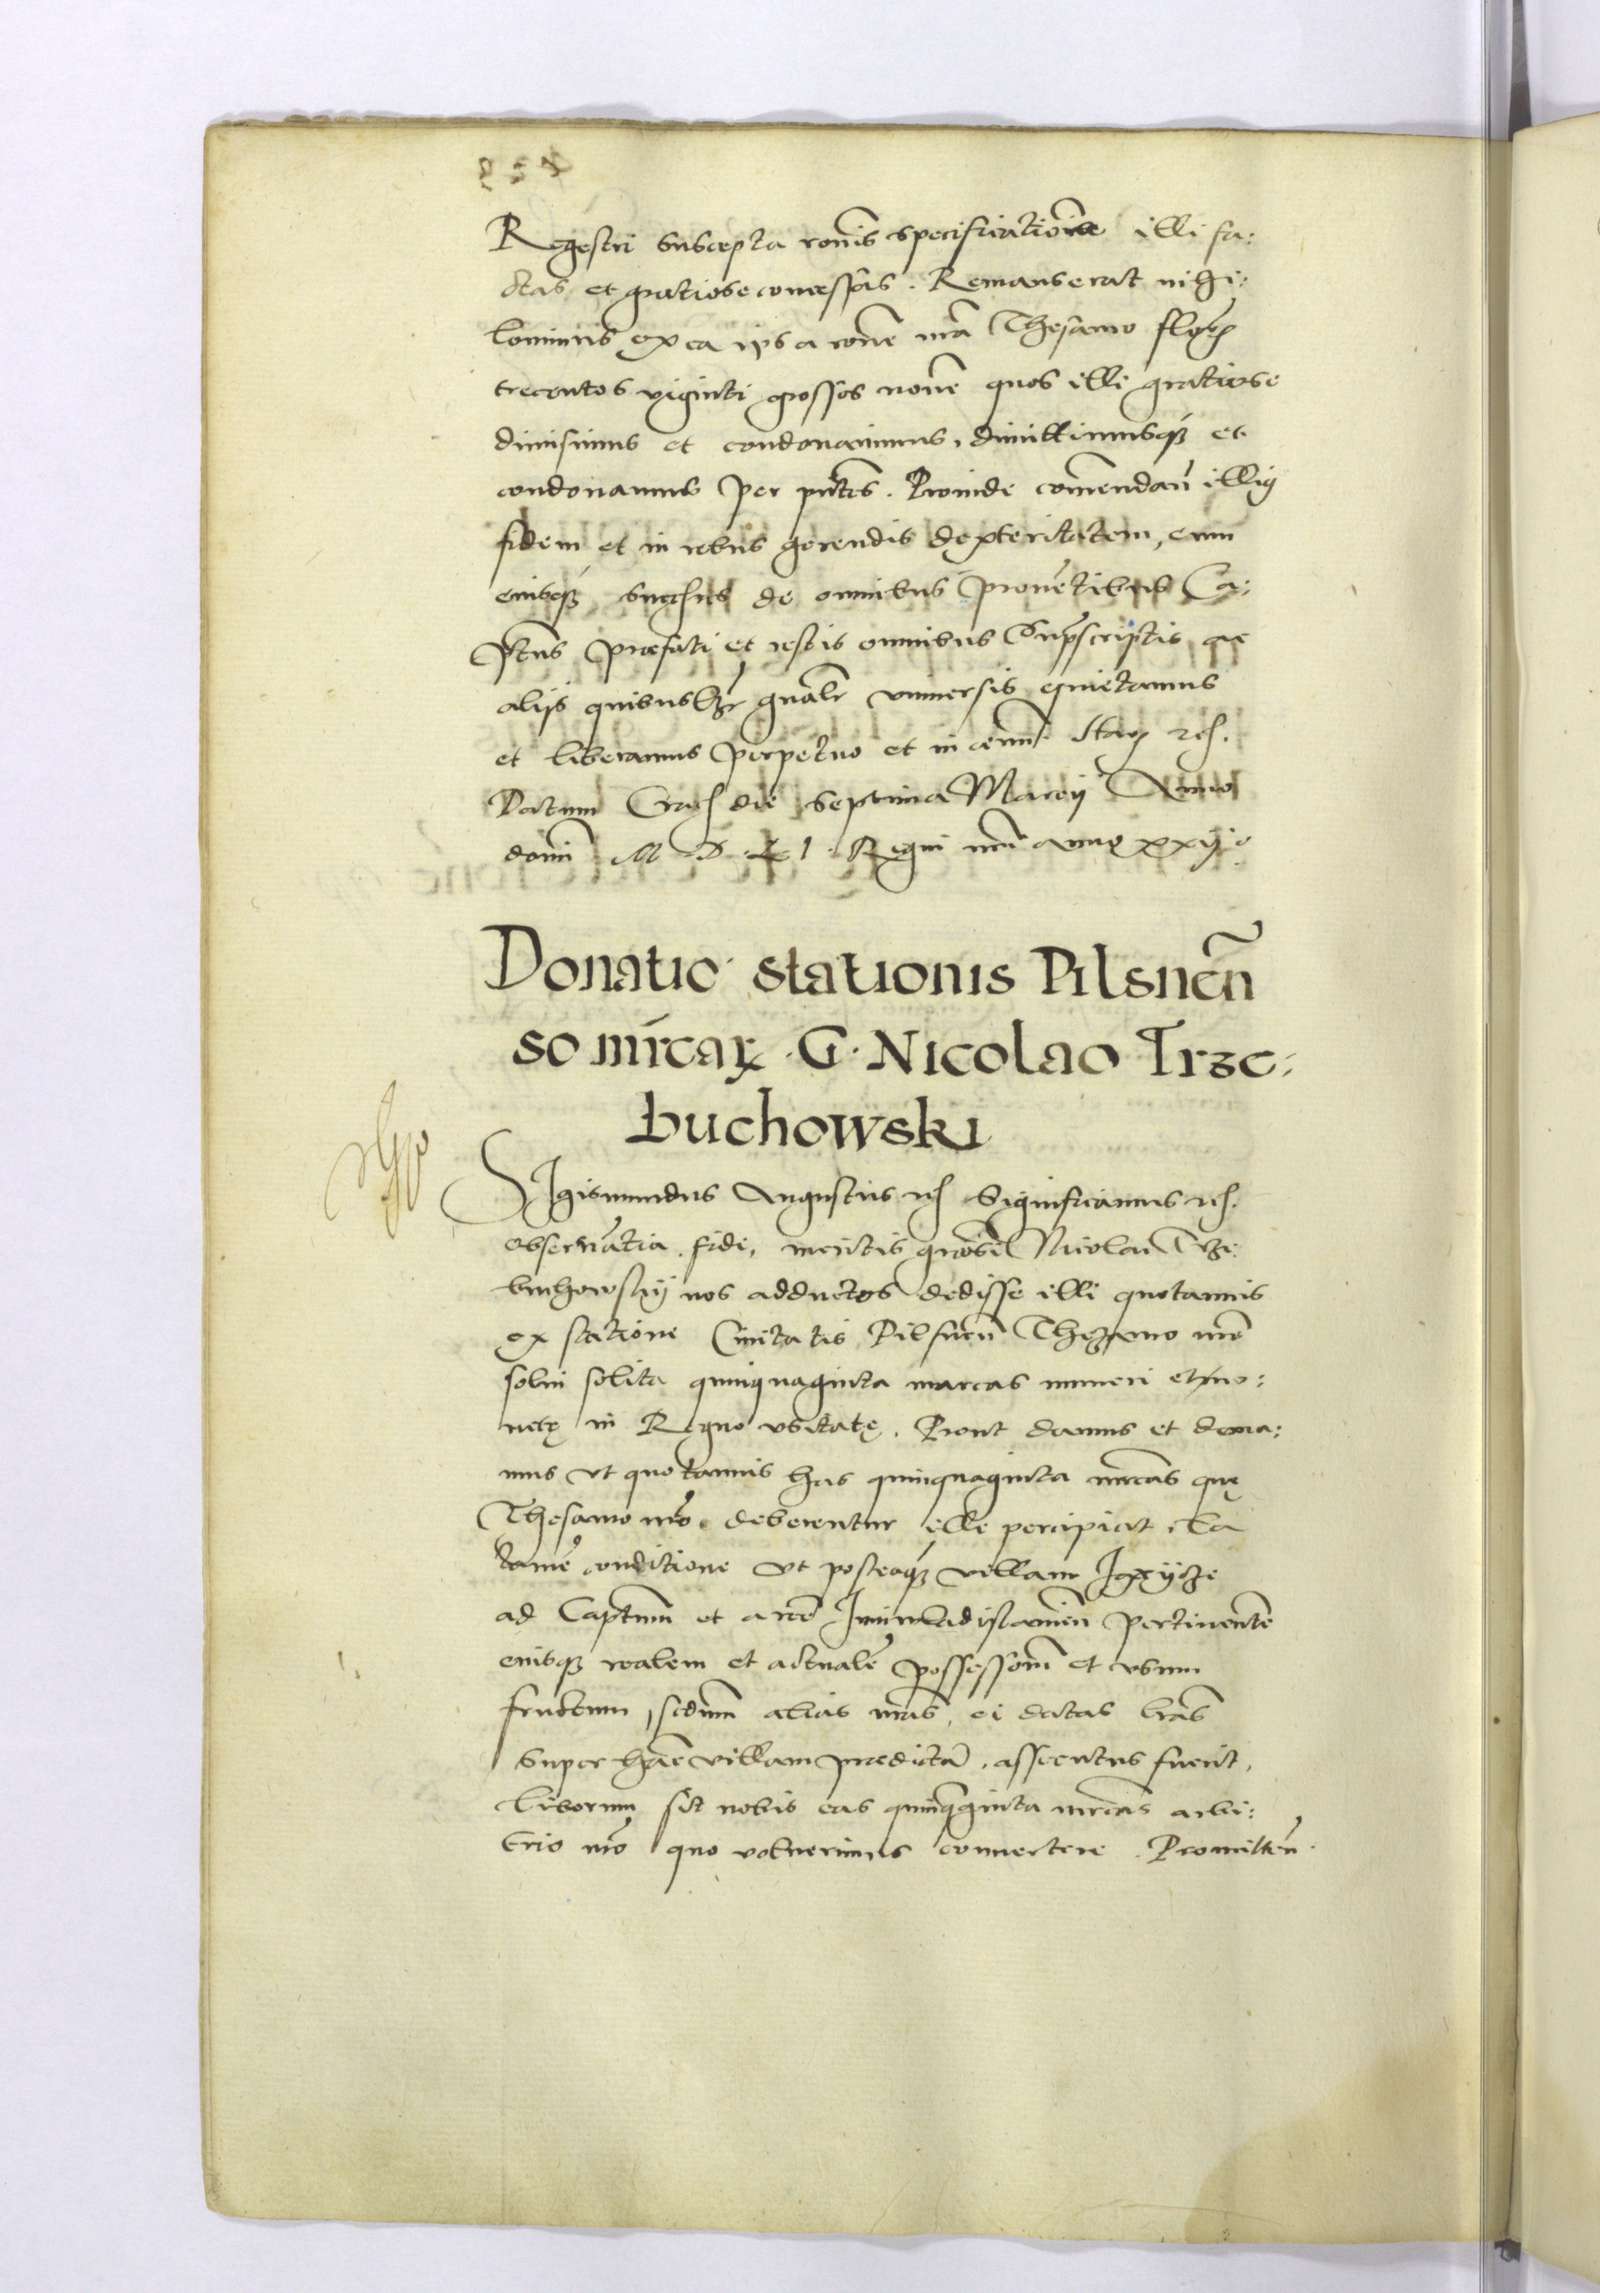 Regestri suscepta ronis specificatione illi fa:
ctas et gratiose concessas. Remanserat nihi:
lominus ex ea ipsa rone nra Thesauro
trecentos viginti grossos novem quos illi gratiose
dimisimus et condonavimus, dimittimusq3 et
condonamus per pntes. Proinde comendan illius
fidem et in rebus gerendis dexteritatem, eum
eiusq3 succes̃res de omnibus proventibus Ca:
ptus praefati et restis omnibus suprscriptis ac
alijs quibuslz gnalr vniversis quietamus
et liberamus perpetuo et in aevum. Harum etc.
Datum Crac die septima Marcij Anno
domi M D L I. Regni nri anno xxij.
Donatio stationis Pilsnen̄
so mrcar. G. Nicolao Trze:
buchowski
Sigismundus Augustus etc Significamus etc.
observantia, fide, meritis gnosi Nicolai Trze:
buchowskij nos adductos dedisse illi quotannis
ex statione Civitatis Pilsnen Thezauro nro
solui solita quinquaginta marcas numeri et mo:
netę in Regno vsitatę. Prout damus et dona:
mus vt quotannis has quinquaginta mrcas quę
Thesauro nro deberentur ille percipiat. Ea
tamē conditione vt posteaq3 villam
ad Captum et arcē Juniwladislavien pertinentē
eiusq3 realem et actualē possessionē et vsum
fructum, scdum alias nras, ei datas lras
super hac villam praedictā, assecutus fuerit,
liberum sit nobis eas quinqginta mrcas arbi:
trio nro quo voluerimus convertere. Promitten.